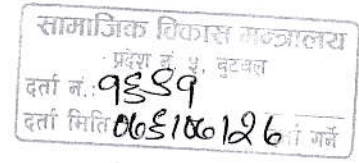 सामाजिक विकास मन्त्रालय
प्रदेश नं. ५, बुटवल
दर्ता नं.: १६९१
दर्ता मिति ०७६/०७/२६ गर्ने